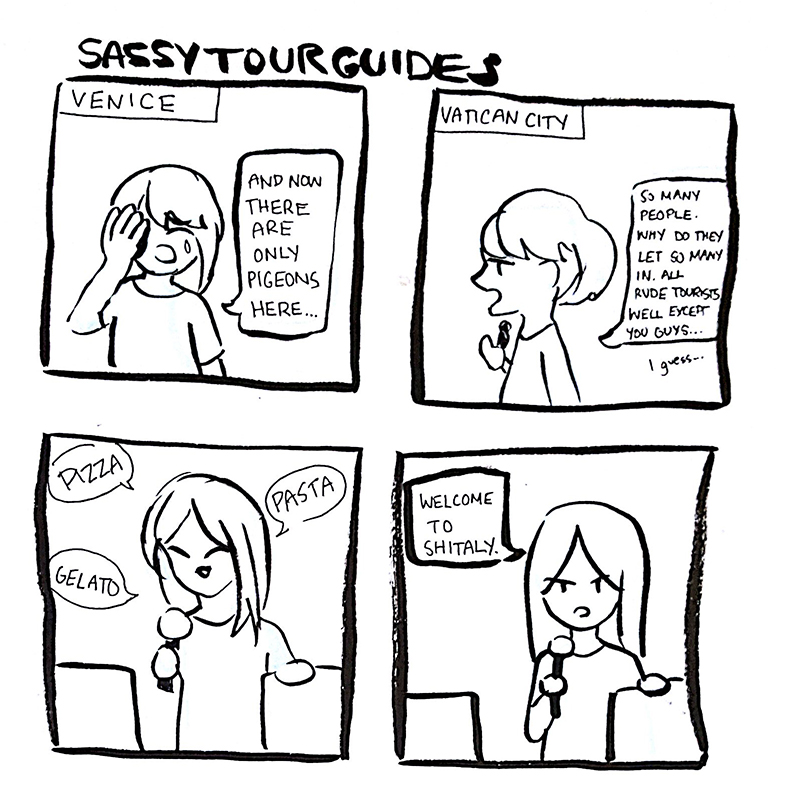 SASSY TOUR GUIDES
VENICE
AND NOW
THERE
ARE
ONLY
PIGEONS
HERE...
VATICAN CITY
SO MANY
PEOPLE.
WHY DO THEY
LET SO MANY
IN. ALL
RUDE TOURISTS
WELL EXCEPT
YOU GUYS...
I guess...
PIZZA
PASTA
GELATO
WELCOME
TO
SHITALY.